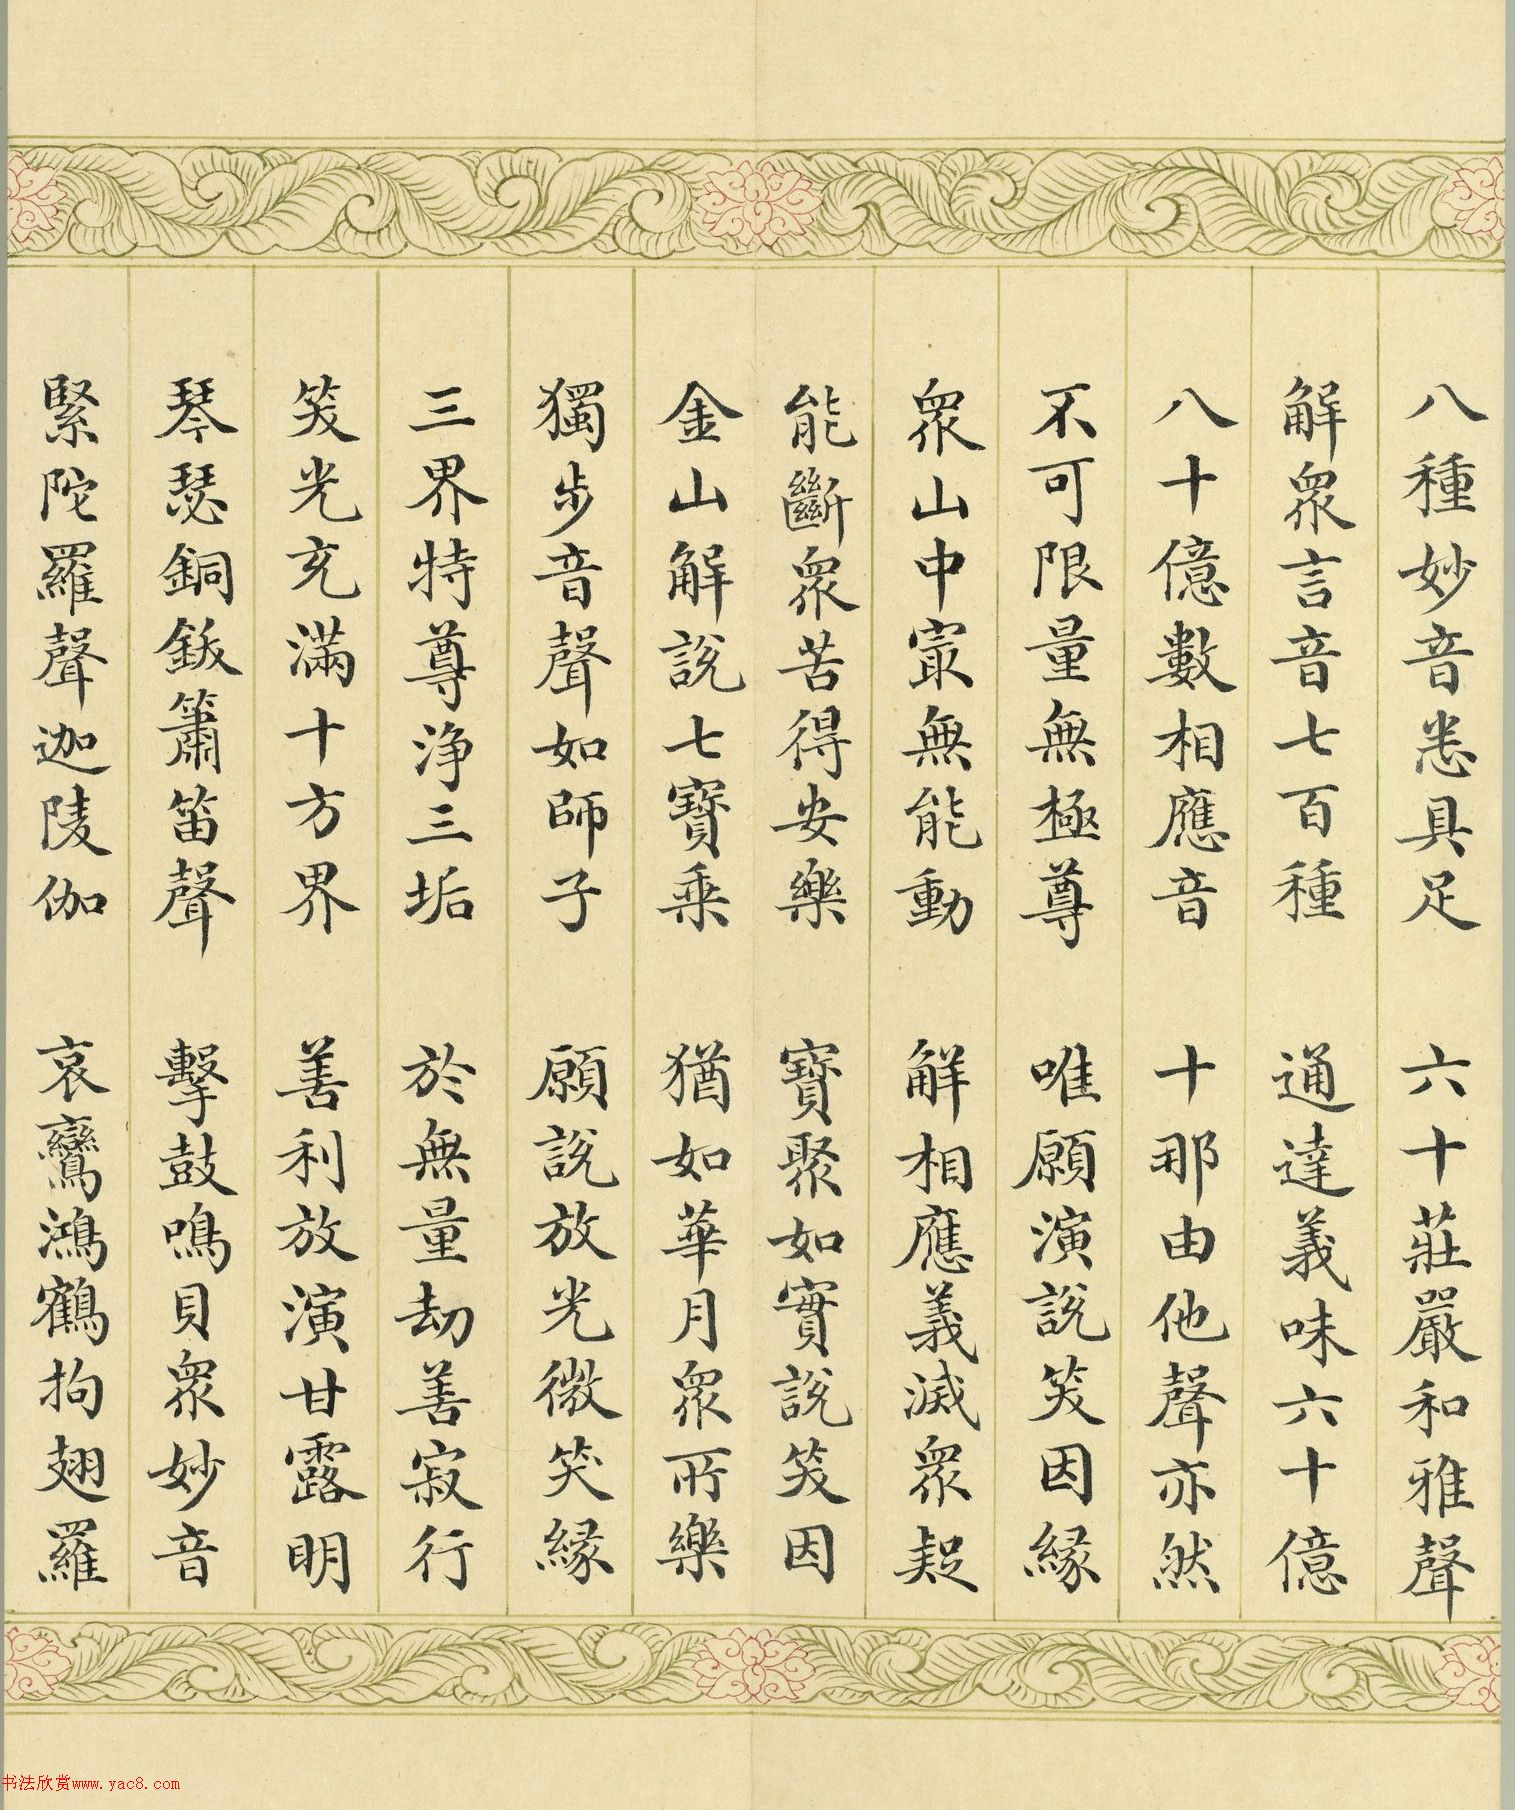 八種妙音悉具足　六十莊嚴和雅聲
解衆言音七百種　通達義味六十億
八十億數相應音　十那由他聲亦然
不可限量無極尊　唯願演說笑因緣
衆山中寂無能動　解相應義滅衆疑
能斷衆苦得安樂　寶聚如實說笑因
金山解說七寶乘　猶如華月衆所樂
獨步音聲如師子　願說放光微笑緣
三界特尊淨三垢　於無量劫善寂行
笑光充滿十方界　善利放演甘露明
琴瑟銅鈸簫笛聲　擊鼓鳴貝衆妙音
緊陀羅聲迦陵伽　哀鸞鴻鶴拘翅羅
书法欣赏www.yac8.com